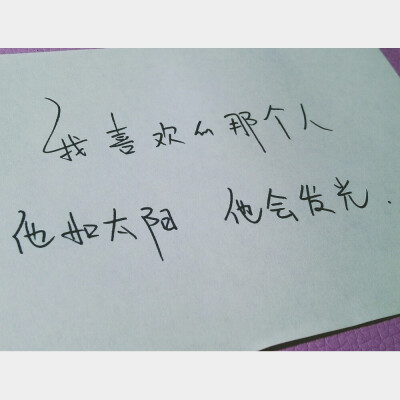 我喜欢的那个人
他如太阳 他会发光.